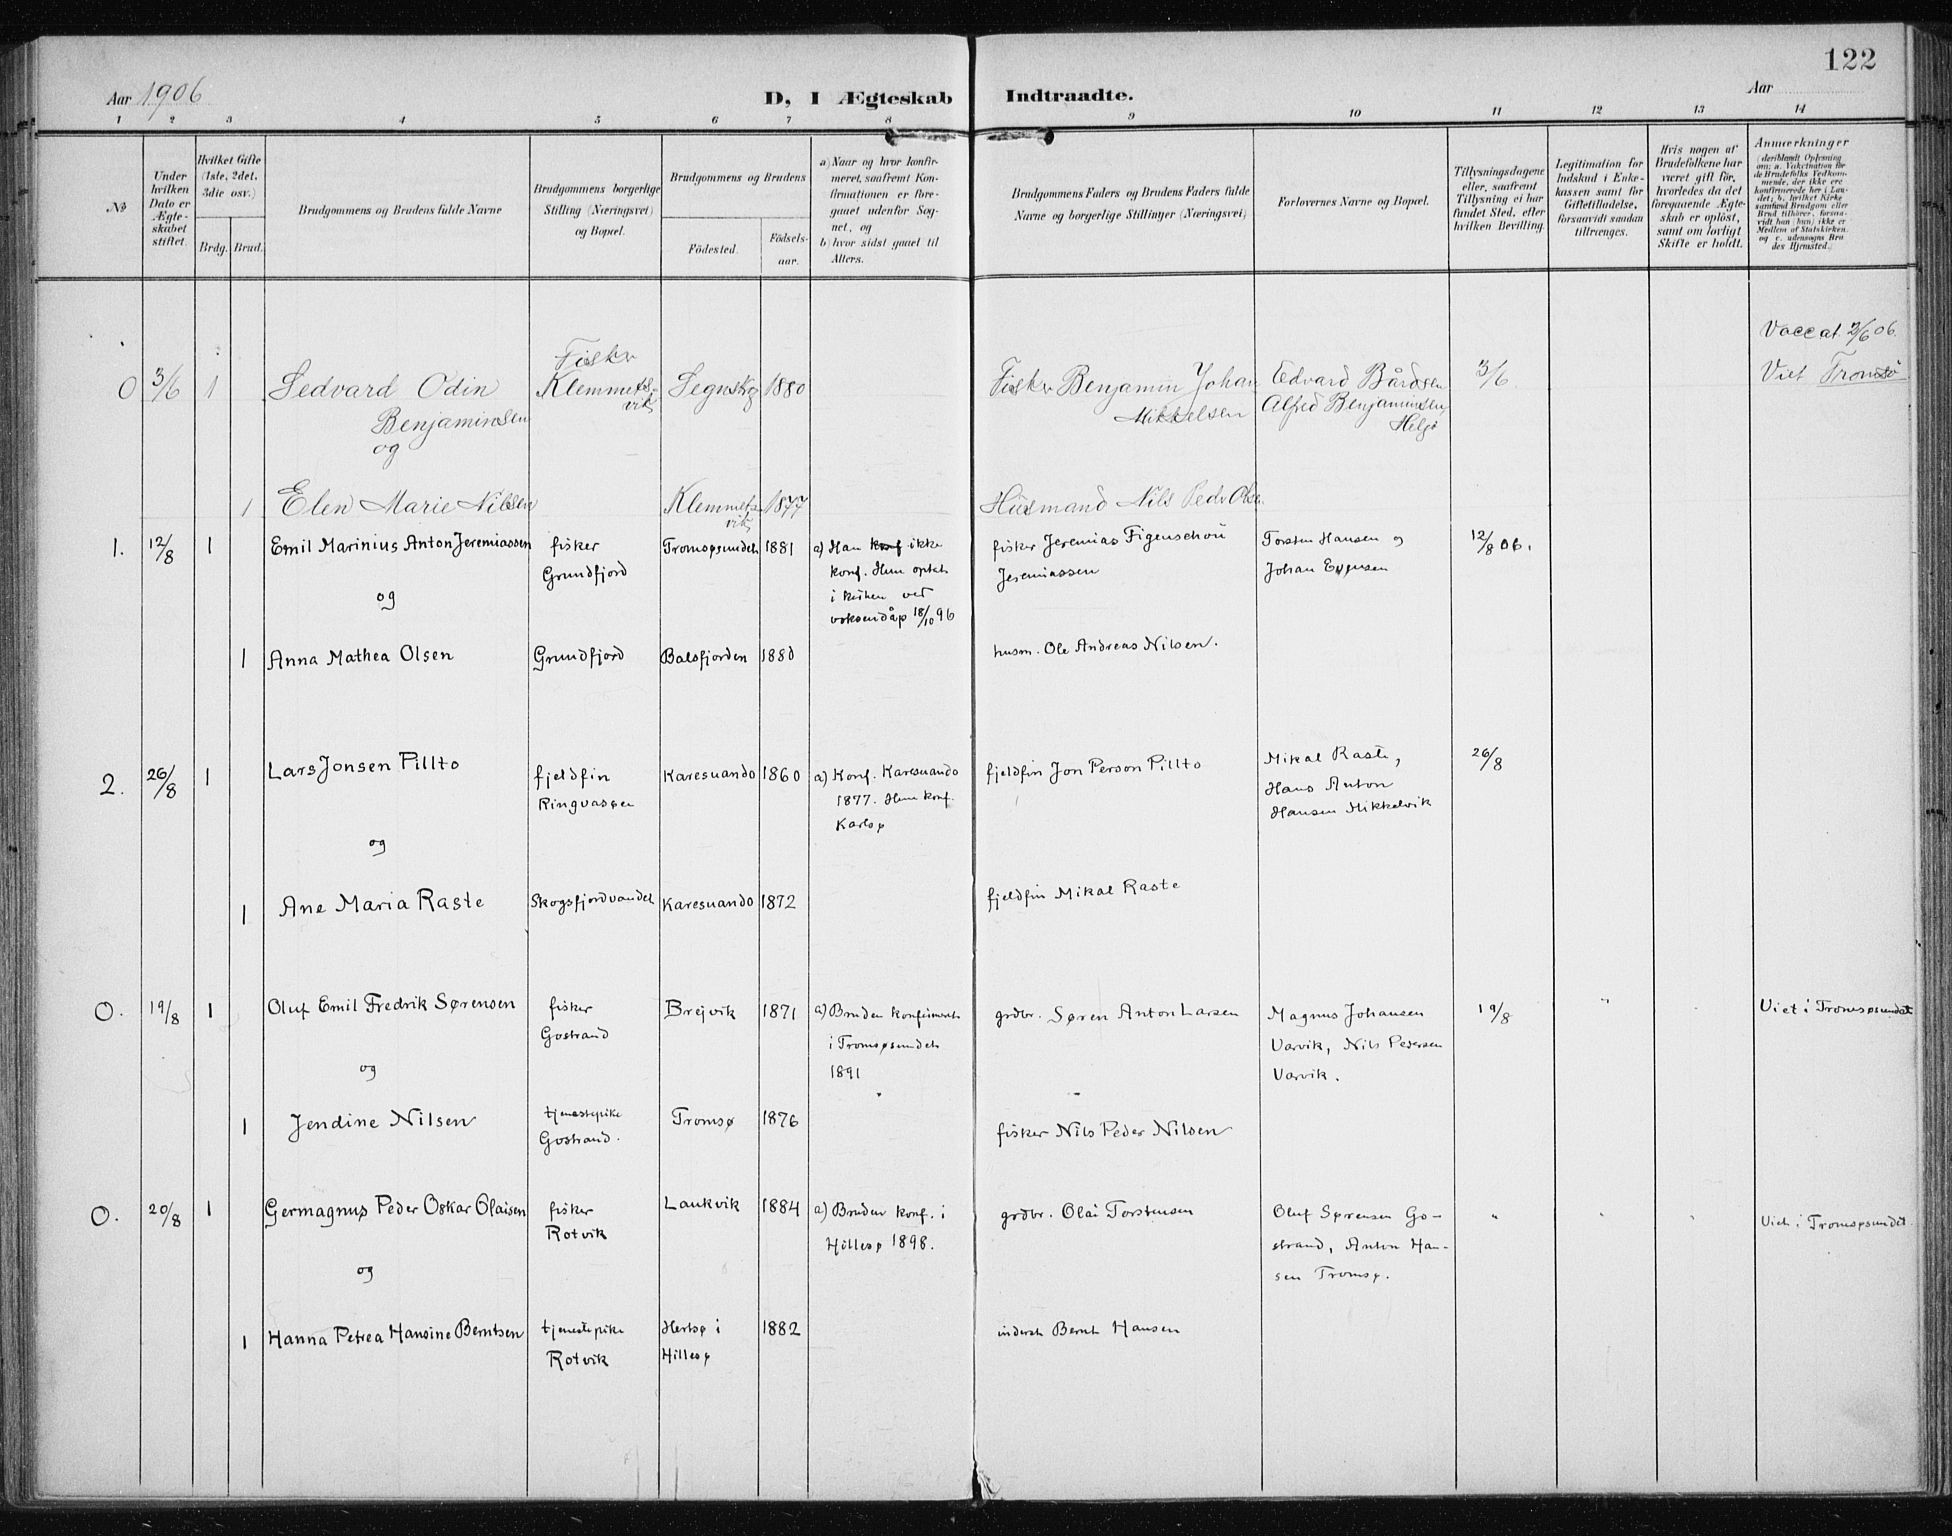 122
Aar 1906
D, I Ægteskab Indtraadte.
Aar
1 2 3 4 5 6 7 8 9 10 11 12 13 14
№
Under hvilken Dato er Ægteskabet stiftet.
Hvilket Gifte (1ste, 2det, 3die osv.)
Brdg. Brud.
Brudgommens og Brudens fulde Navne
Brudgommens borgerlige Stilling (Næringsvei) og Bopæl.
Brudgommens og Brudens
Fødested.
Fødselsaar.
a) Naar og hvor konfirmeret, saafremt Konfirmationen er foregaaet udenfor Sognet, og
b) hvor sidst gaaet til Alters.
Brudgommens Faders og Brudens Faders fulde Navne og borgerlige Stillinger (Næringsvei)
Forlovernes Navne og Bopæl.
Tillysningsdagene eller, saafremt Tillysning ei har fundet Sted, efter hvilken Bevilling.
Legitimation for Indskud i Enkekassen samt for Giftetilladelse, forsaavidt saadan tiltrænges.
Hvis nogen af Brudefolkene har været gift før, hvorledes da det foregaaende Ægteskab er opløst, samt om lovligt Skifte er holdt.
Anmærkninger
(deriblandt Oplysning om: a. Vakcination for de Brudefolks Vedkommende, der ikke ere konfirmerede her i Landet; b. hvilket Kirkesamfund Brudgom eller Brud tilhører, forsaavidt han (hun) ikke er Medlem af Statskirken, og c. udensogns Brudes Hjemsted.)
Vaccat 2/6 06.
0 3/6 1 Sedvard Odin Benjaminsen
Fisker Klemmetsvik
1880
Fisker Benjamin Johan Mikkelsen
Edvard Bårdsen
Alfred Benjaminsen
Helgø
3/6
Viet Tromsø
og
1 Elen Marie Nilsen
Klemmetsvik 1877
Husmand Nils Peder Olsen
1. 12/8 1 Emil Marinius Anton Jeremiassen
fisker Grundfjord
Tromsøsundet 1881
a) Han konf ikke
konf. Hun optat
i kirken ved
voksendåp 18/10 96
fisker Jeremias Figenschou
Jeremiassen
Torsten Hansen og
Johan Evensen
12/8 06.
og
1 Anna Mathea Olsen
Grundfjord
Balsfjorden 1880
husm. Ole Andreas Nilsen.
2. 26/8 1 Lars Jonsen Pillto
fjeldfin
Ringvassøen
Karesuando 1860
a) Konf. Karesuando
1877. Hun konf.
Karlsø
fjeldfin Jon Person Pillto
Mikal Raste,
Hans Anton
Hansen Mikkelvik
26/8
og
1 Ane Maria Raste
Skogsfjordvandet
Karesuando 1872
fjeldfin Mikal Raste
0. 19/8 1 Oluf Emil Fredrik Sørensen
fisker
Gostrand
Brejvik 1871
a) Bruden konfirmert
i Tromsøsundet
1891
grdbr. Søren Anton Larsen
Magnus Johansen
Varvik, Nils Pedersen
Varvik.
19/8
"
Viet i Tromsøsundet
og
1 Jendine Nilsen
tjenestepike
Gostrand.
Tromsø 1876
fisker Nils Peder Nilsen
0. 20/8 1 Germagnus Peder Oskar Olaisen
fisker
Rotvik
Laukvik 1884
a) Bruden konf. i
Hillesø 1898.
grdbr. Olai Torstensen
Oluf Sørensen Go-
strand, Anton Han-
sen Tromsø.
" " "
Viet i Tromsøsundet
og
1 Hanna Petrea Hansine Berntsen
tjenestepike
Rotvik
i
Hillesø
1882
inderst Bernt Hansen